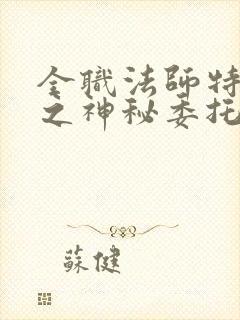 全職法師特
之神秘委托
蘇健